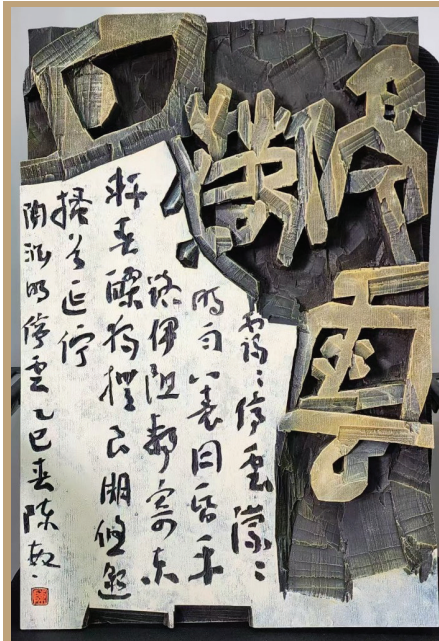 停雲
靄〻停雲濛〻
時雨八表同昏平
路伊阻靜寄東
軒春醪獨撫良朋悠邈
搔首延佇
陶淵明停雲乙巳春陳